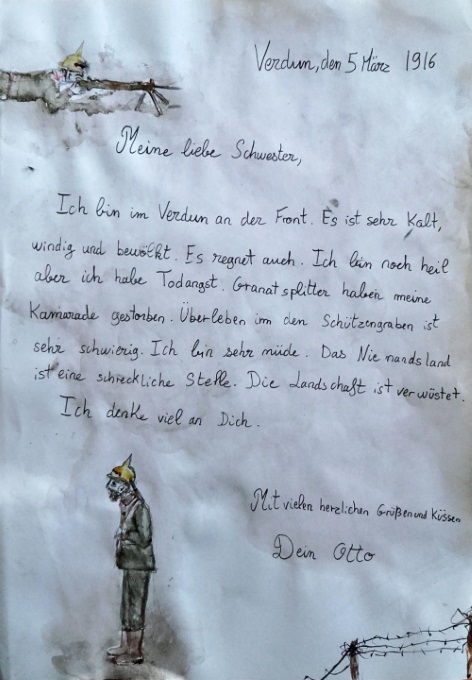 Verdun, den 5 März 1916
Meine liebe Schwester,
Ich bin im Verdun an der Front. Es ist sehr Kalt,
windig und bewölkt. Es regnet auch. Ich bin noch heil
aber ich habe Todangst. Granatsplitter haben meine
Kamarade gestorben. Überleben im den Schützengraben ist
sehr schwierig. Ich bin sehr müde. Das Niemandsland
ist eine schreckliche Stelle. Die Landschaft ist verwüstet.
Ich denke viel an Dich.
Mit vielen herzlichen Grüßen und Küssen
Dein Otto